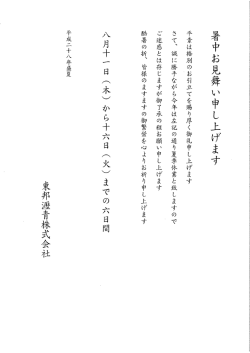 暑中お見舞い申し上げます
平素は格別のお引立てを賜り厚く御礼申し上げます
さて、誠に勝手ながら今年は左記の通り夏季休業と致しますので
ご迷惑とは存じますが御了承の程お願い申し上げます
酷暑の折、皆様のますますの御繁栄を心よりお祈り申し上げます
八月十一日（木）から十六日（火）までの六日間
平成二十八年盛夏
東邦瀝青株式会社